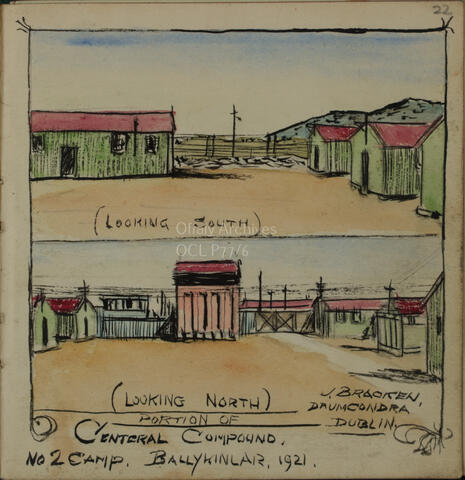 22
(LOOKING SOUTH)
Offaly Archives
OCL P77/6
(LOOKING NORTH)
PORTION OF
CENTERAL COMPOUND.
NO 2 CAMP. BALLYKINLAR, 1921.
J. BRACKEN,
DRUMCONDRA
DUBLIN.